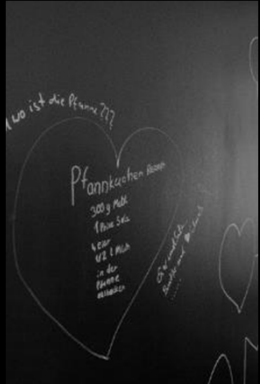 wo ist die Pfanne???
Pfannkuchen
300 g Mehl
1 Prise Salz
4 eier
1/2 l Milch
in der
Pfanne
ausbacken